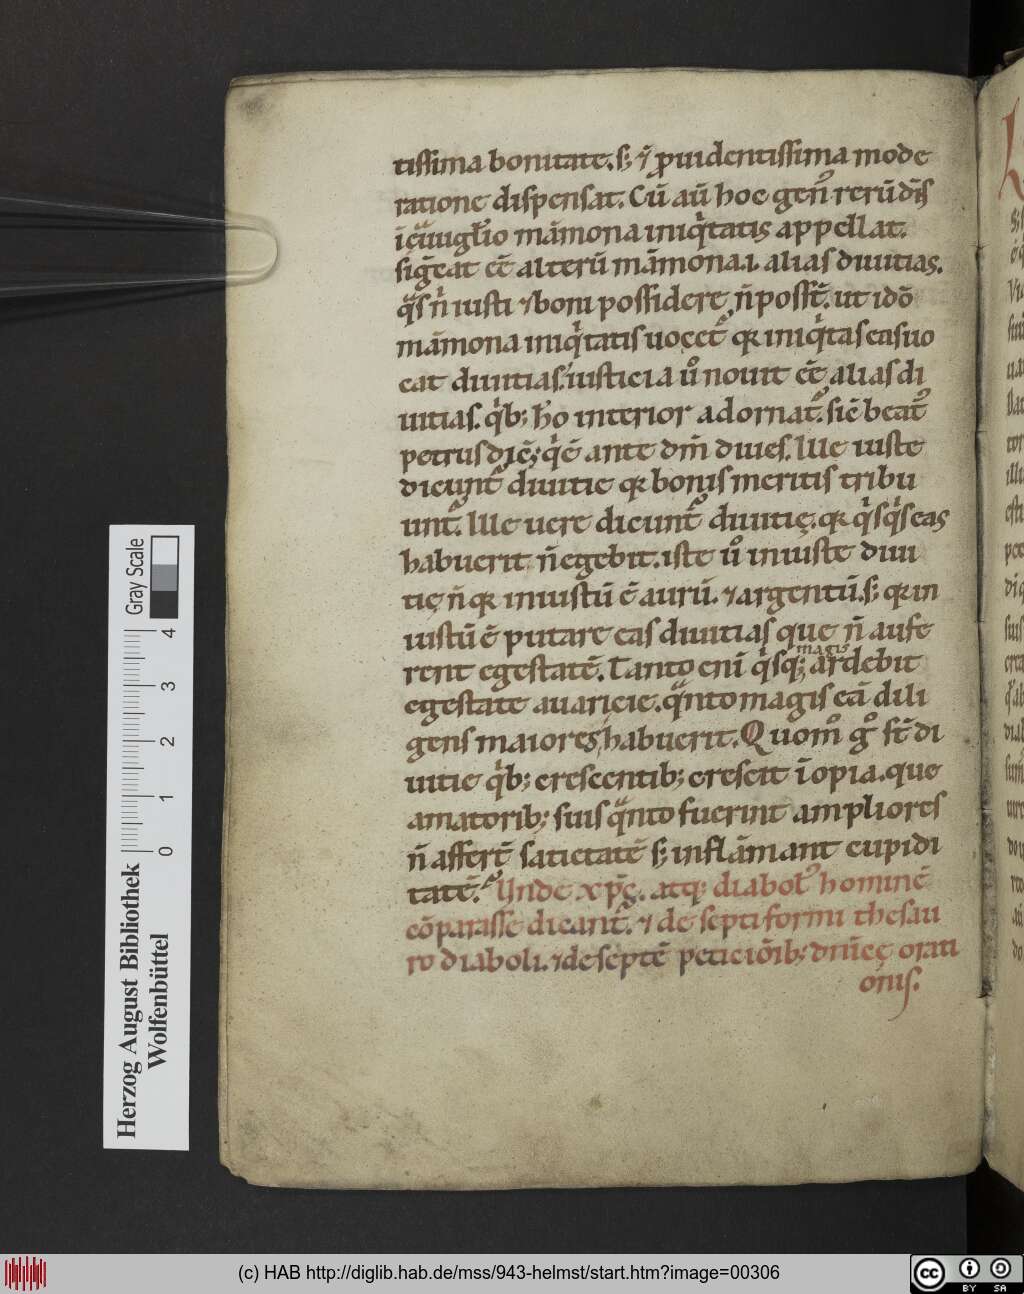 tissima bonitate. s; ⁊ ꝓuidentissima mode
ratione dispensat. Cū aū hoc gen᷒ rerū dn̄s
in euuāgl̄io mām̄ona iniq̇tatis appellat.
sig̅cat eē alterū mām̄ona.ı. alias diuitias.
iusti ⁊ boni possidere n̄ poss̄t. ut idō
mām̄ona iniq̇tatis uocet᷒ qꝛ iniq̇tas eas uo
cat diuitias. iusticia u̇o nouit eē alias di
uitias. q̇b; hō interior adornat᷒. sic̄ beat᷒
petrus dic̄; q̇ ē ante dm̄ diues. Ille iuste
dicunt᷒ diuitie qꝛ bonis meritis tribu
unt᷒. Ille uere dicunt᷒ diuitię. qꝛ q̇sq̇s eas
habuerit n̄ egebit. iste u̇o iniuste diui
tię n̄ qꝛ iniustū ē aurū. ⁊ argentū. s; qꝛ in
iustū ē putare eas diuitias que n̄ aufe
rent egestatē. Tanto eni̅ q̇sq; magis ardebit
egestate auaricie. q̇nto magis eā dili
gens maiores habuerit. Quom᷒ g̊ st̄ di
uitie q̇b; crescentib; crescit īopia. que
amatorib; suis q̇nto fuerint ampliores
n̄ affert̄ satietatē s; inflāmant cupidi
tatē. Unde xp̄c. atq; diabol᷒ hominē
cōparasse dicant᷒. ⁊ de septiformi thesau
ro diaboli. ⁊ de septē peticiōib; dn̄icę orati
onis.
Herzog August Bibliothek
Wolfenbüttel
0 1 2 3 4
Gray Scale
(c) HAB http://diglib.hab.de/mss/943-helmst/start.htm?image=00306
cc BY SA